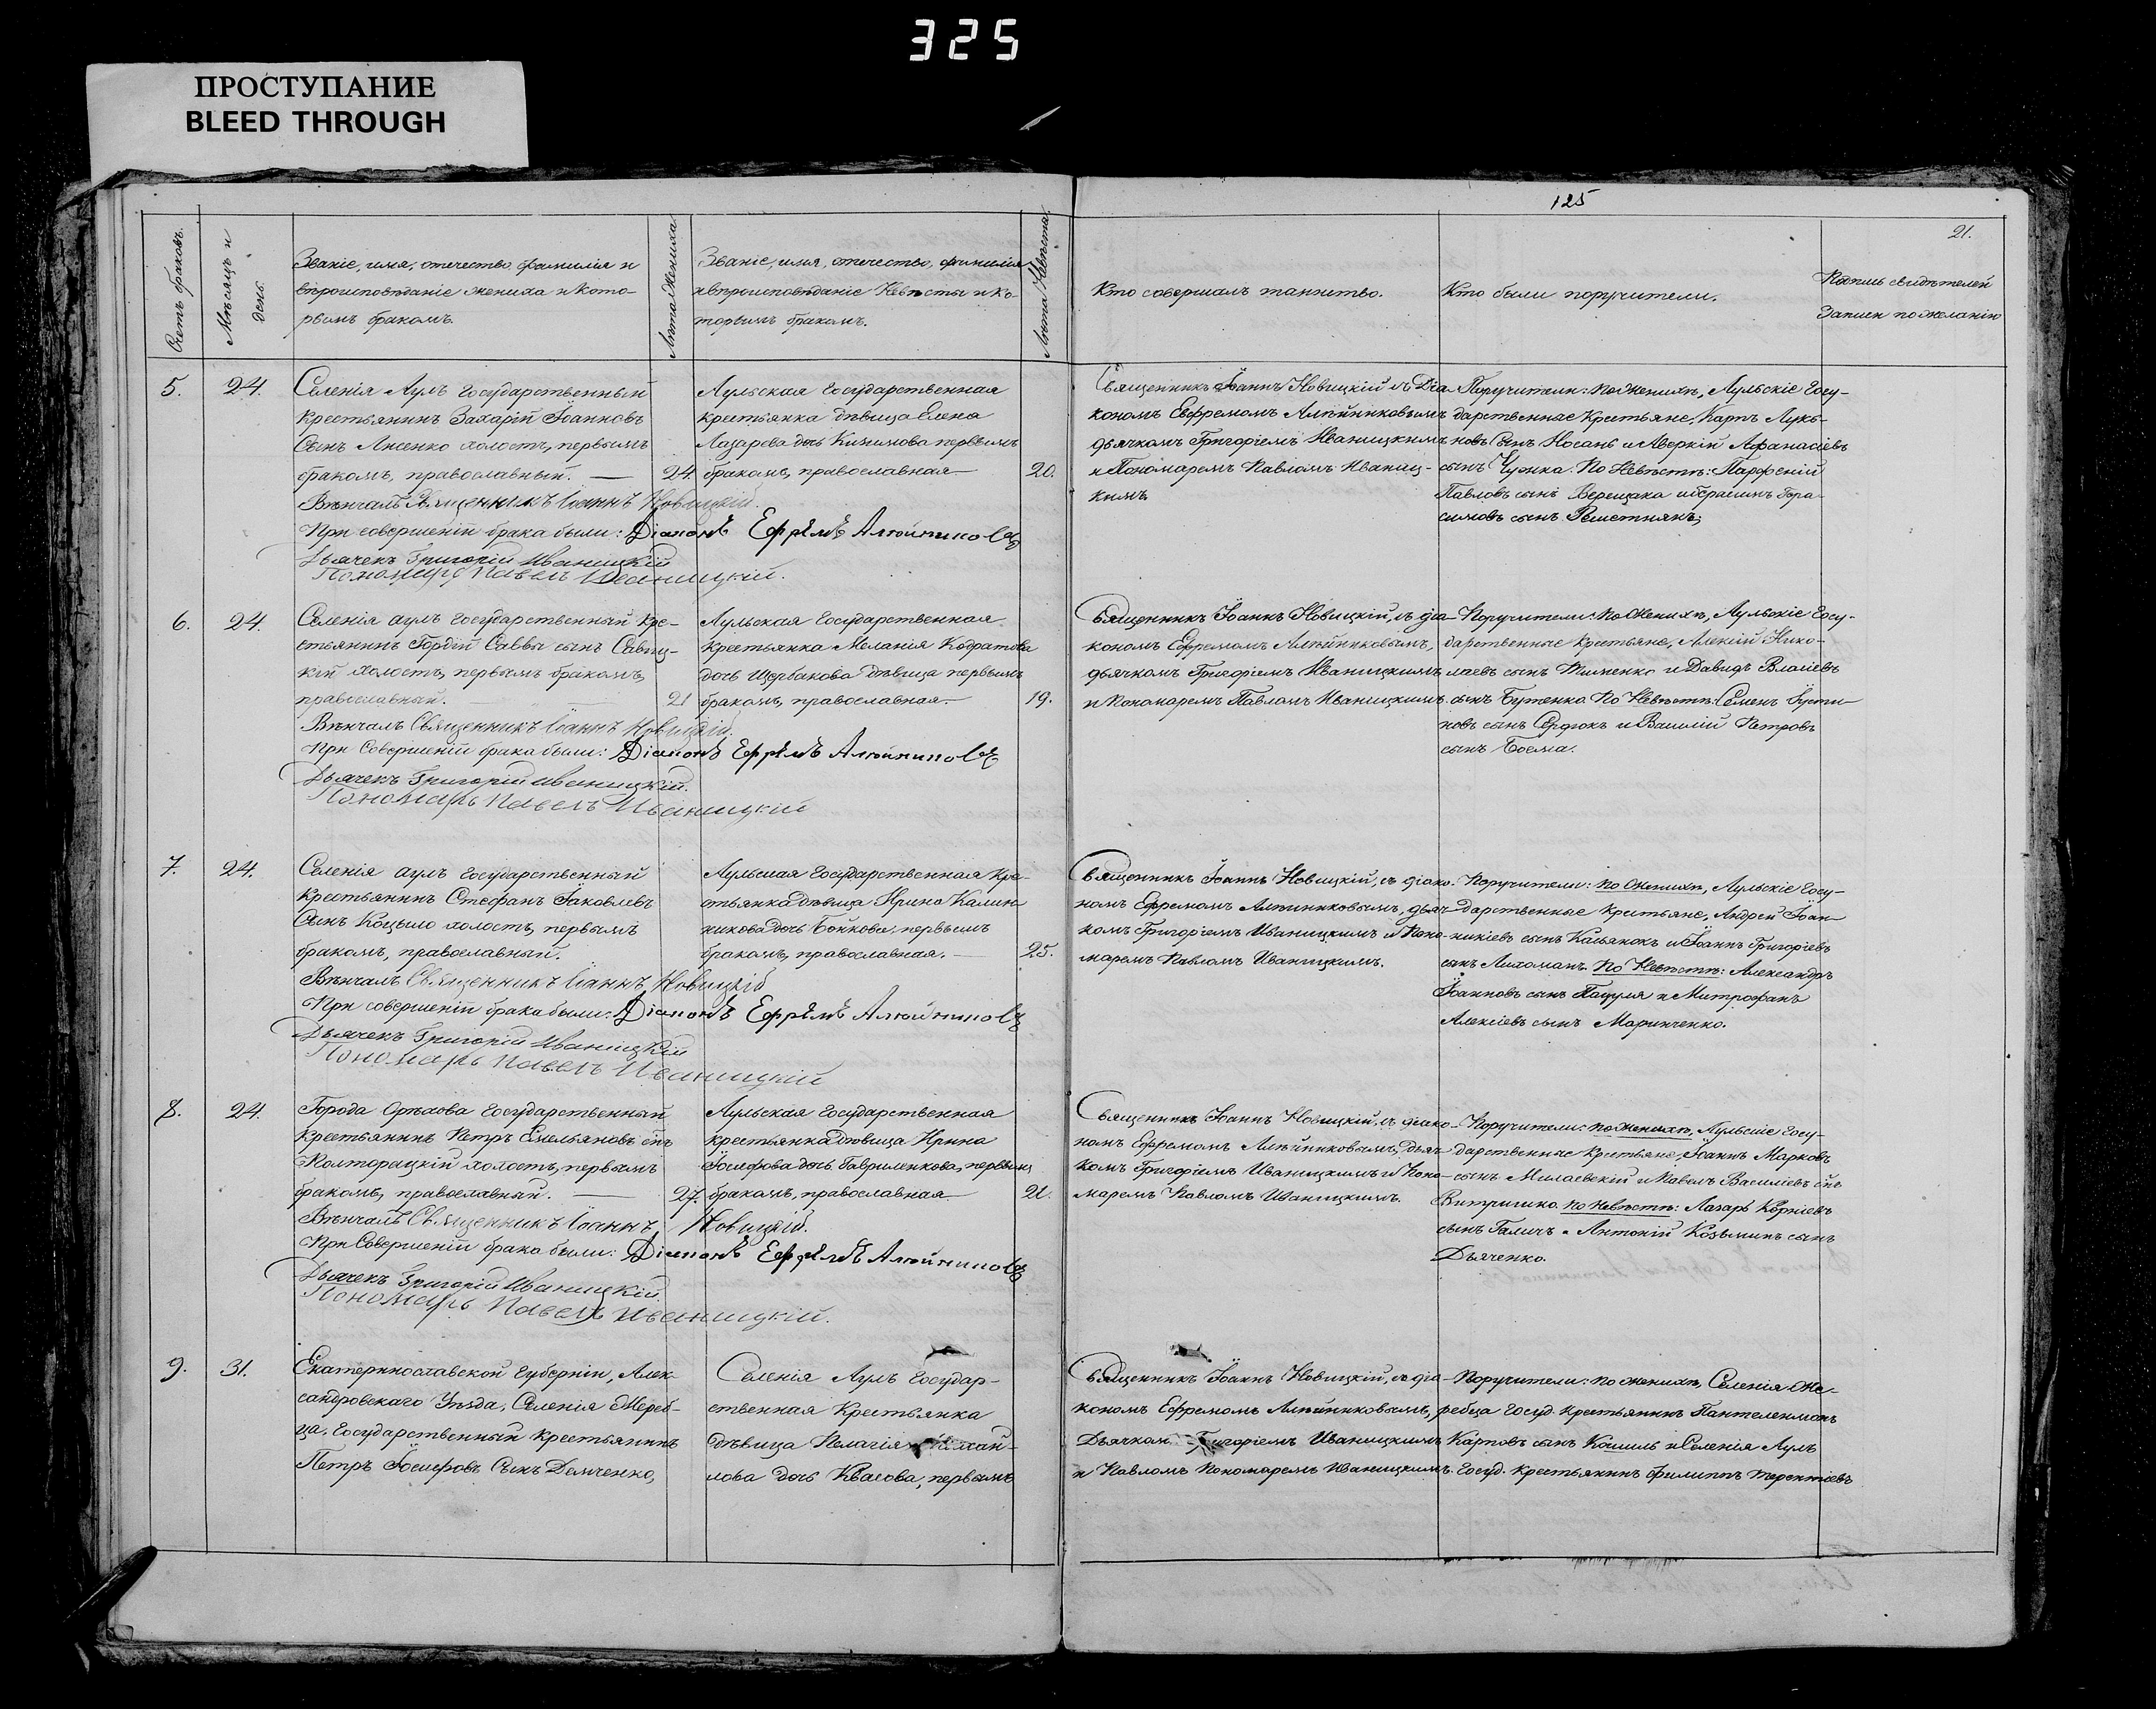 325
ПРОСТУПАНИЕ
BLEED THROUGH
125
21.
Счетъ браковъ.
Мѣсяцъ и
день.
Званіе, имя, отечество, фамилія и
вѣроисповѣданіе жениха и кото-
рымъ бракомъ.
Лѣта Жениха
Званіе, имя, отечество, фамилія
и вѣроисповѣданіе Невѣсты и ко-
торымъ бракомъ.
Лѣта Невѣсты
Кто совершалъ таинство.
Кто были поручители.
Подпись свидѣтелей
Записи по желанію
5.
24.
Селенія Аулъ Государственный
крестьянинъ Захарій Іоанновъ
Сынъ Лисенко холостъ, первымъ
бракомъ, православный.
24.
Аульская Государственная
крестьянка дѣвица Елена
Лазарева дочь первымъ
бракомъ, православная
20.
Священникъ Іоаннъ Новицкій съ Діа-
кономъ Евфремомъ Алѣйниковымъ
дьячкомъ Григоріемъ Иваницкимъ
и Пономаремъ Павломъ Иваниц-
кимъ
Поручители: по Женихѣ, Аульскіе Госу-
дарственные Крестьяне, Карпъ Лукъ-
новъ Сынъ Носань и Аверкій Афанасіевъ
сынъ Чужка. По Невѣстѣ: Парфеній
Павловъ сынъ Верещака и Герасимъ Гера-
симовъ сынъ Решетнякъ;
Вѣнчалъ Священникъ Іоаннъ Новицкій.
При совершеніи брака были: Діаконъ Ефремъ Алѣйниковъ
Дьячекъ Григорій Иваницкій
Пономарь Павелъ Иваницкій.
6.
24.
Селенія аулъ Государственный кре-
стьянинъ Гордій Саввы сынъ Савиц-
кій холостъ, первымъ бракомъ,
православный.
21
Аульская Государственная
крестьянка Меланія Кодратова
дочь Щербакова дѣвица первымъ
бракомъ, православная.
19.
Священникъ Іоаннъ Новицкій, съ діа-
кономъ Ефремомъ Алѣйниковымъ,
дьячкомъ Григоріемъ Иваницкимъ
и Пономаремъ Павломъ Иваницкимъ.
Поручители: по Женихѣ, Аульскіе Госу-
дарственные крестьяне, Алексій Нико-
лаевъ сынъ и Давидъ Власіевъ
сынъ Бутенко По Невѣстѣ: Семенъ Усти-
новъ сынъ Сердюкъ и Василій Петровъ
сынъ
Вѣнчалъ Священникъ Іоаннъ Новицкій.
При Совершеніи брака были: Діаконъ Ефремъ Алѣйниковъ
Дьячекъ Григорій Иваницкій.
Пономарь Павелъ Иваницкій
7.
24.
Селенія аулъ Государственный
Крестьянинъ Стефанъ Іаковлевъ
Сынъ Коцыло холостъ, первымъ
бракомъ, православный.
Аульская Государственная Кре-
стьянка дѣвица Ирина Калин-
никова дочь Бойкова, первымъ
бракомъ, православная.
25.
Священникъ Іоаннъ Новицкій, съ діако-
номъ Ефремомъ Алѣйниковымъ, дьяч-
комъ Григоріемъ Иваницкимъ и Поно-
маремъ Павломъ Иваницкимъ.
Поручители: по Женихѣ, Аульскіе Госу-
дарственные Крестьяне, Андрей Іоан-
никіевъ сынъ Касьянокъ и Іоаннъ Григоріевъ
сынъ Лихоманъ. По Невѣстѣ: Александръ
Іоанновъ сынъ Пацуля и Митрофанъ
Алексіевъ сынъ Маринченко.
Вѣнчалъ Священникъ Іоаннъ Новицкій
При совершеніи брака были: Діаконъ Ефремъ Алѣйниковъ
Дьячекъ Григорій Иваницкій
Пономарь Павелъ Иваницкій
8.
24.
Города Орѣхова Государственный
Крестьянинъ Петръ Емельяновъ снъ
Полторацкій холостъ, первымъ
бракомъ, православный.
27.
Аульская Государственная
крестьянка дѣвица Ирина
Іосифова дочь Гавриленкова, первымъ
бракомъ, православная
21.
Священникъ Іоаннъ Новицкій, съ діако-
номъ Ефремомъ Алѣйниковымъ, дьяч-
комъ Григоріемъ Иваницкимъ и Поно-
маремъ Павломъ Иваницкимъ.
Поручители: по женихѣ, Аульскіе Госу-
дарственные Крестьяне, Іоаннъ Марковъ
сынъ Милаевскій и Павелъ Василіевъ снъ
по Невѣстѣ: Лазарь Корніевъ
сынъ Галичъ и Антоній Козьминъ сынъ
Дьяченко.
Вѣнчалъ Священникъ Іоаннъ Новицкій.
При Совершеніи брака были: Діаконъ Ефремъ Алѣйниковъ
Дьячекъ Григорій Иваницкій.
Пономарь Павелъ Иваницкій.
9.
31.
Екатеринославской Губерніи, Алек-
сандровскаго Уѣзда, Селенія Жереб-
ца, Государственный крестьянинъ
Петръ Іосифовъ Сынъ Демченко,
Селенія Аулъ Государ-
ственная Крестьянка
дѣвица Пелагія Михай-
лова дочь Квасова, первымъ
Священникъ Іоаннъ Новицкій, съ діа-
кономъ Ефремомъ Алѣйниковымъ,
Дьячком Григоріемъ Иваницкимъ
и Павломъ Пономаремъ Иваницкимъ.
Поручители: по женихѣ, Селенія Же-
ребца Госуд. крестьянинъ Пантелеимонъ
Карповъ сынъ Кошиль и Селенія Аулъ
Госуд. крестьянинъ Филиппъ Терентіевъ